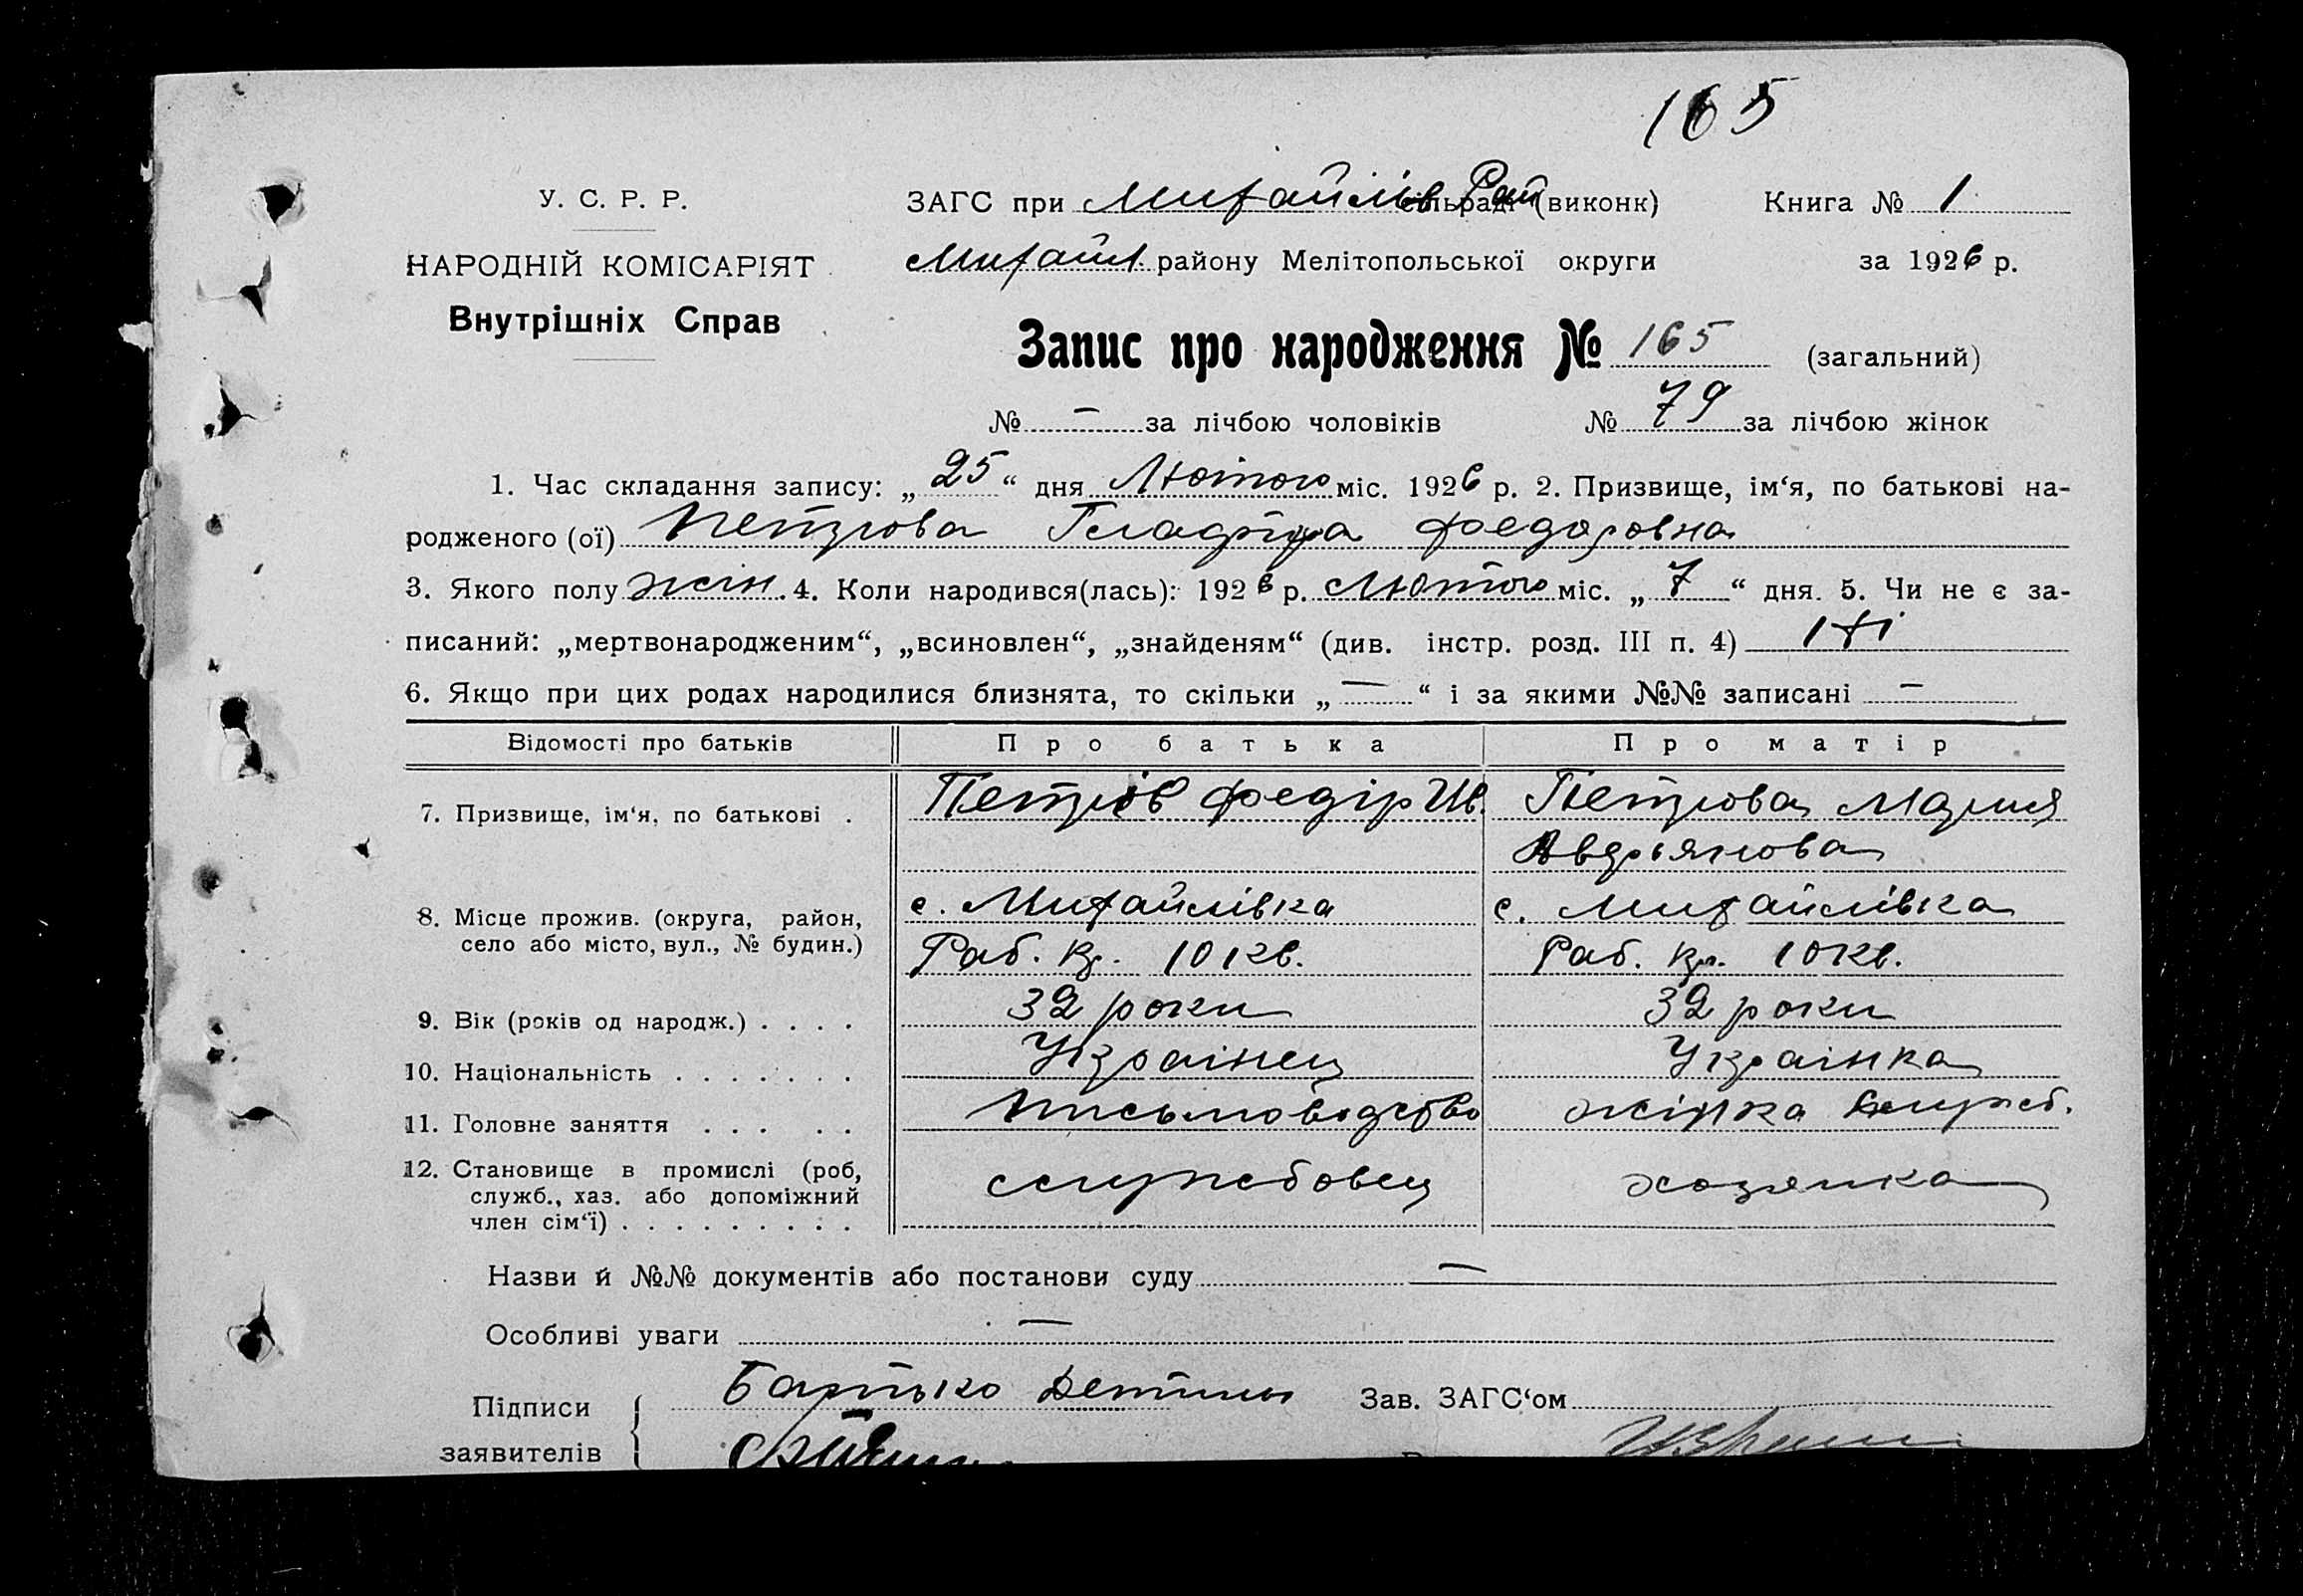 165
У. С. Р. Р.
ЗАГС при Михайлів Рай сільраді (виконк)
Книга № 1
НАРОДНІЙ КОМІСАРІЯТ
Михайл. району Мелітопольської округи
за 1926 р.
Внутрішніх Справ
Запис про народження № 165 (загальний)
№ — за лічбою чоловіків № 79 за лічбою жінок
1. Час складання запису: „25“ дня Лютого міс. 1926 р. 2. Призвище, ім‘я, по батькові на-
родженого (ої) Петрова Гларіра Федоровна
3. Якого полу жін. 4. Коли народився(лась): 1926 р. Лютого міс. „7“ дня. 5. Чи не є за-
писаний: „мертвонародженим“, „всиновлен“, „знайденям“ (див. інстр. розд. III п. 4) Ні
6. Якщо при цих родах народилися близнята, то скільки „—“ і за якими №№ записані —
Відомості про батьків Про батька Про матір
7. Призвище, ім‘я, по батькові . Петрів Федір Ив. Петрова Мария
Авдріянова
8. Місце прожив. (округа, район, с. Михайлівка с. Михайлівка
село або місто, вул., № будин.) Раб. кр. 10 кв. Раб. кр. 10 кв.
9. Вік (років од народж.) . . . . 32 роки 32 роки
10. Національність . . . . . . . Українец Українка
11. Головне заняття . . . . . Письмоводство жінка служб.
12. Становище в промислі (роб, службовец хозяика
служб., хаз. або допоміжний
член сім‘ї) . . . . . . . . .
Назви й №№ документів або постанови суду —
Особливі уваги —
Підписи Батько Детини Зав. ЗАГС‘ом
заявителів